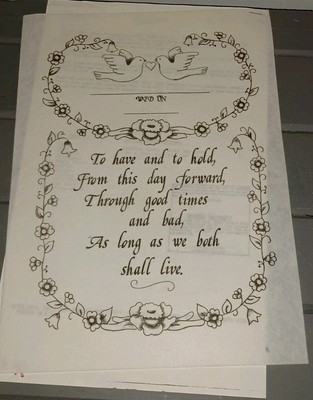 To have and to hold,
From this day forward,
Through good times
and bad,
As long as we both
shall live.